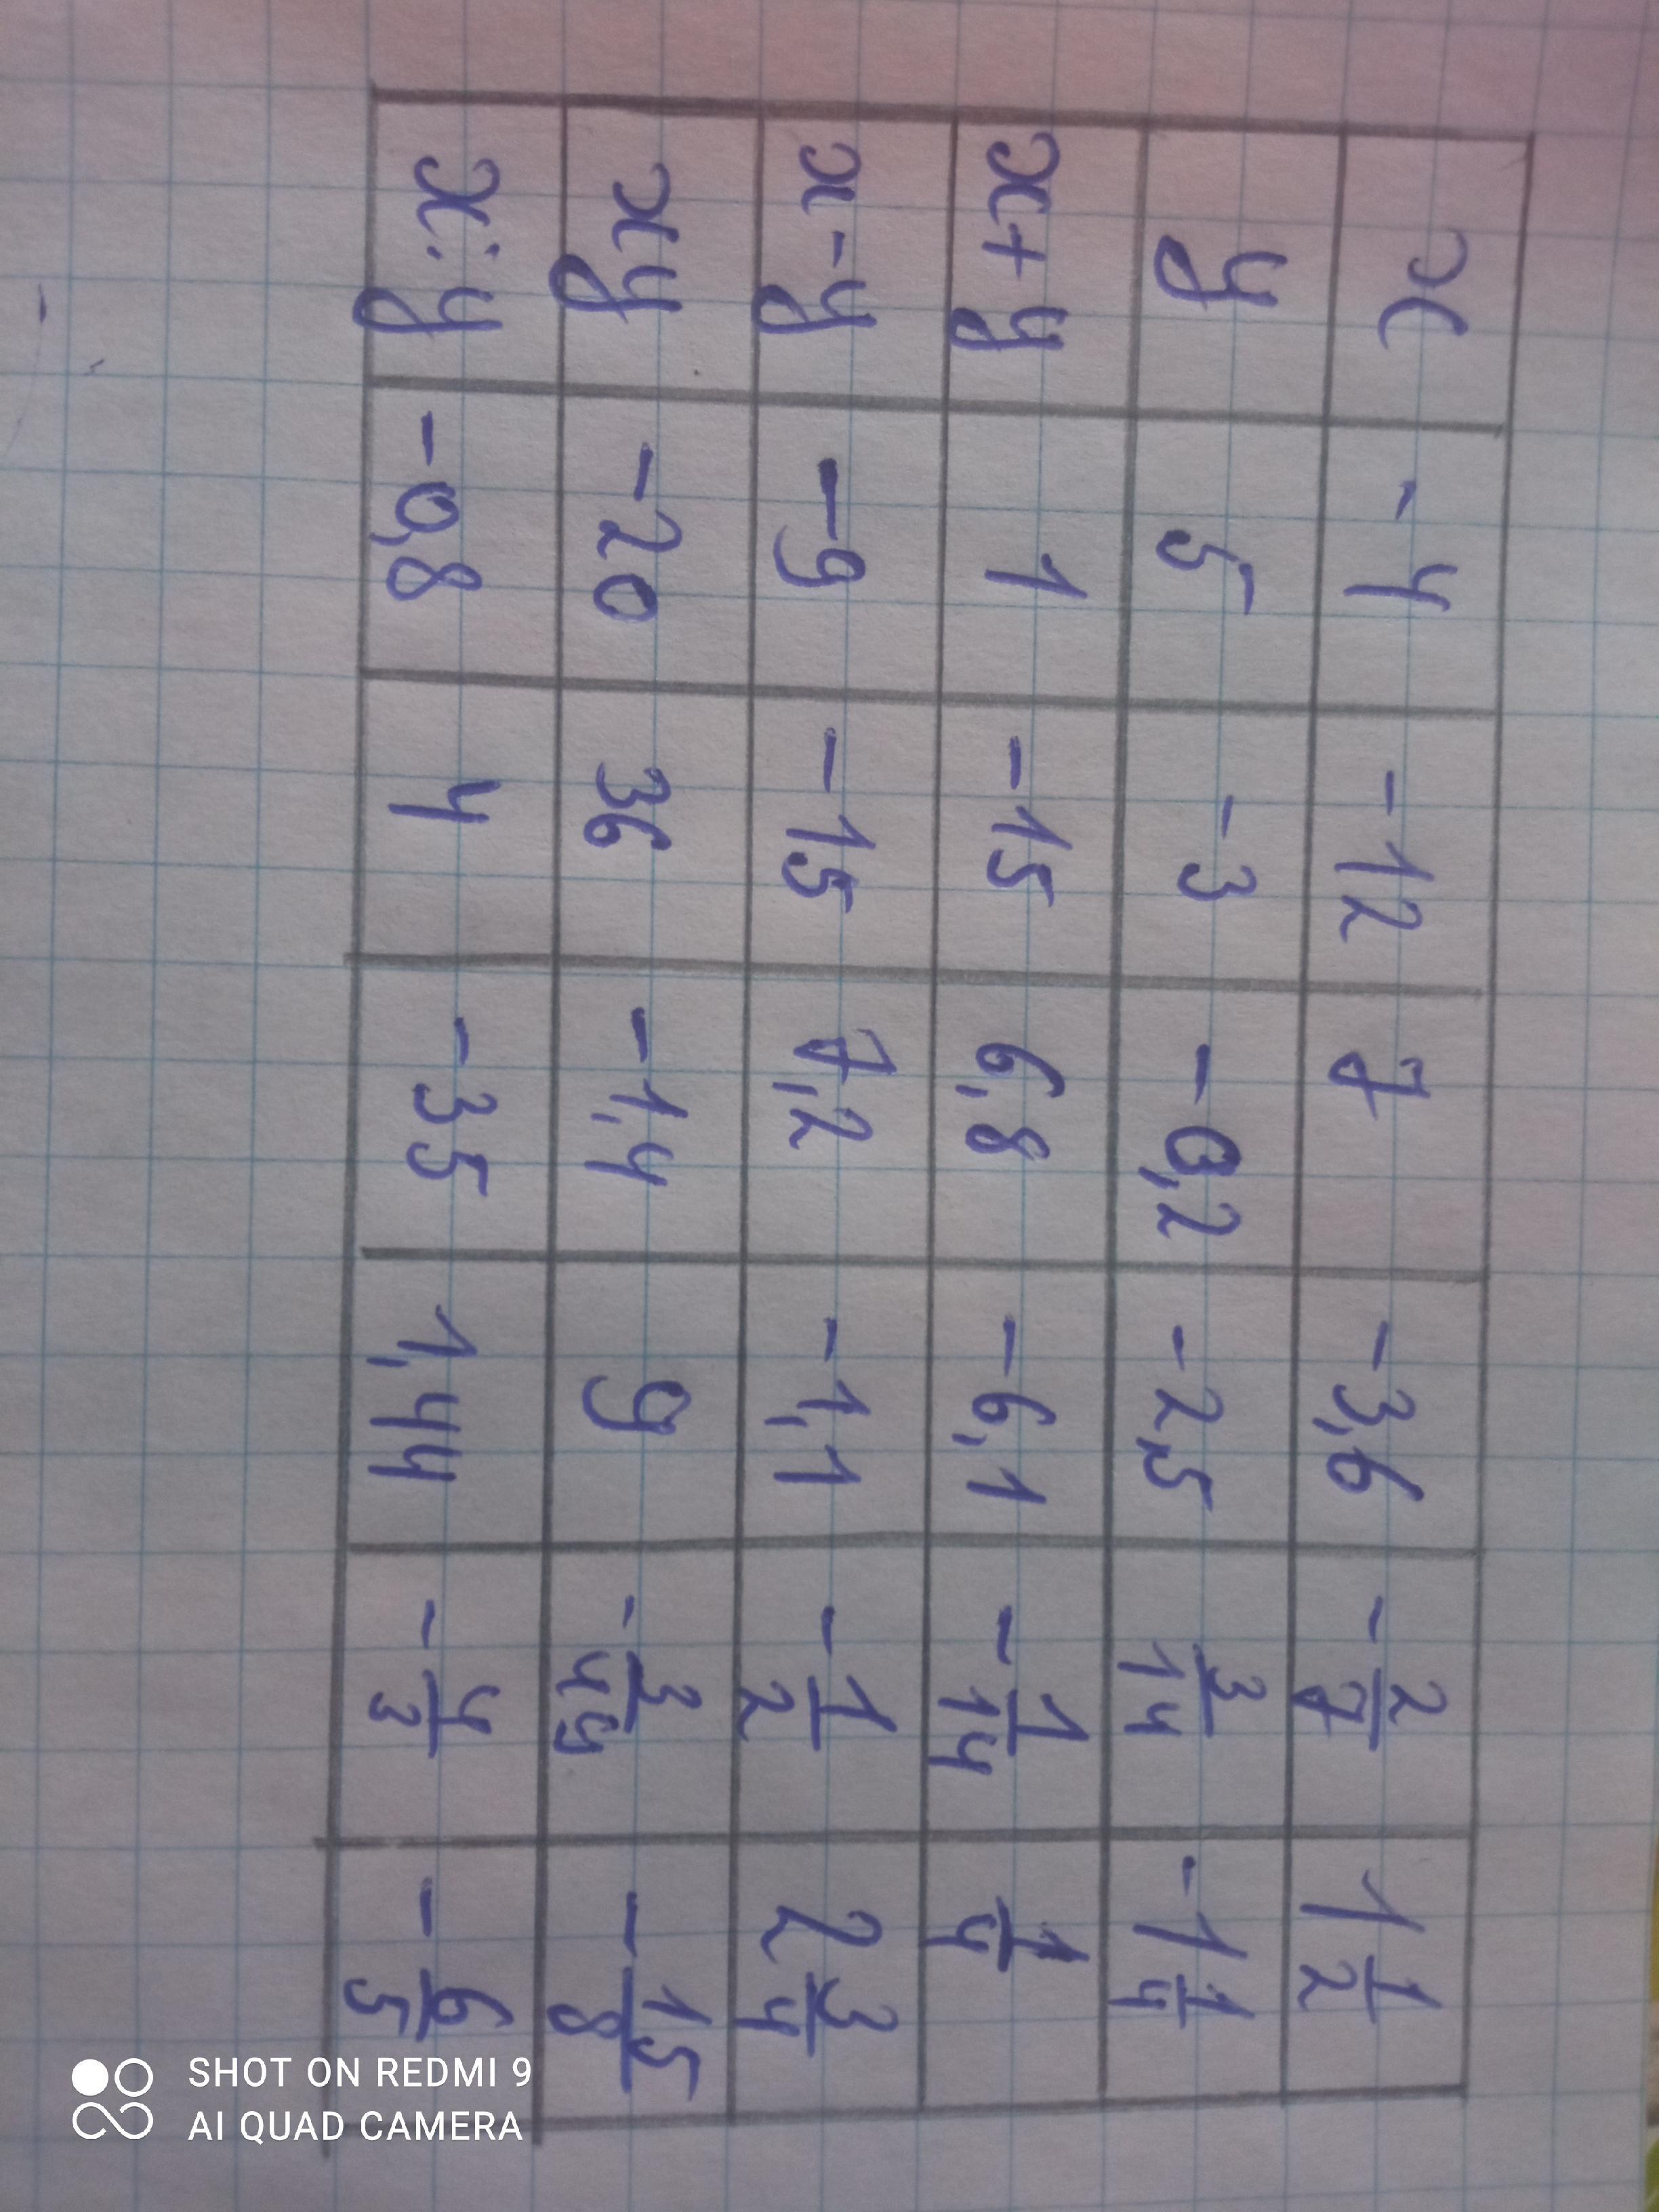 x -4 -12 7 -3,6 -2/7 1 1/2
y 5 -3 -0,2 -2,5 3/14 -1 1/4
x+y 1 -15 6,8 -6,1 -1/14 1/4
x-y -9 -15 7,2 -1,1 -1/2 2 3/4
xy -20 36 -1,4 9 -3/49 -15/8
x:y -0,8 4 -35 1,44 -4/3 -6/5
SHOT ON REDMI 9
AI QUAD CAMERA